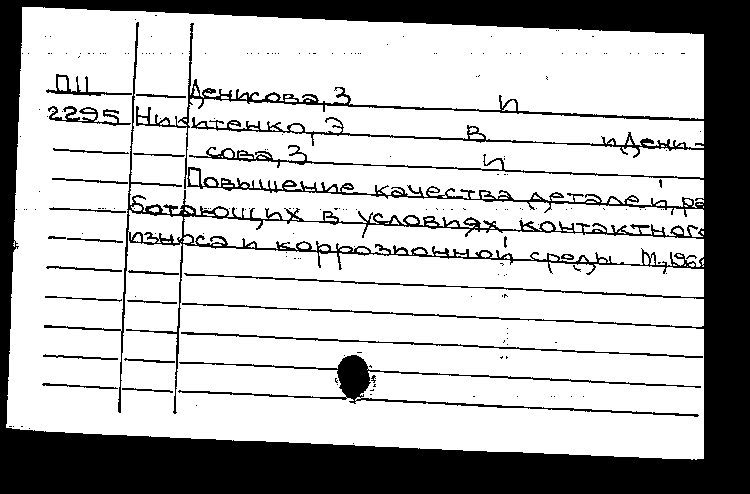 П11 Денисова, З И
2295 Никитенко, Э В и Дени-
сова, З И
Повышение качества деталей, ра
ботающих в условиях контактного
износа и коррозионной среды. М.,